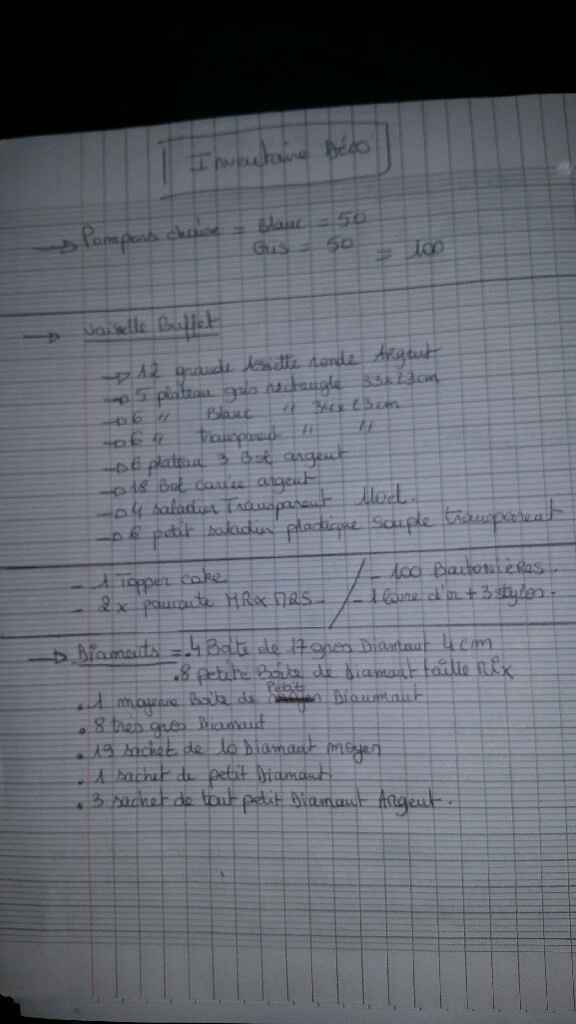 Inventaire Déco
→ Pampons chaise = Blanc = 50
Gris = 50 = 100
→ Vaiselle Buffet
→ 12 grande Assiette ronde Argent
→ 5 plateau gris rectangle 33x23cm
→ 6 " Blanc " 34x23cm
→ 6 " transparent " "
→ 6 plateau 3 Bol argent
→ 18 Bol carrée argent
→ 4 saladier Transparent
→ 6 petit saladier plastique souple transparent
- 1 Topper cake / - 100 Barbonièras.
- 2 x pancarte MR x MRS - / - 1 livre d'or + 3 stylos.
→ Diamants = . 4 Boîte de 17 gros Diamant 4cm
. 8 petite Boîte de Diamant taille
. 1 moyene Boîte de Petit Diaumaut
. 8 tres gros Diamant
. 19 sachet de 10 Diamant moyen
. 1 sachet de petit Diamant
. 3 sachet de tout petit Diamant Argent.